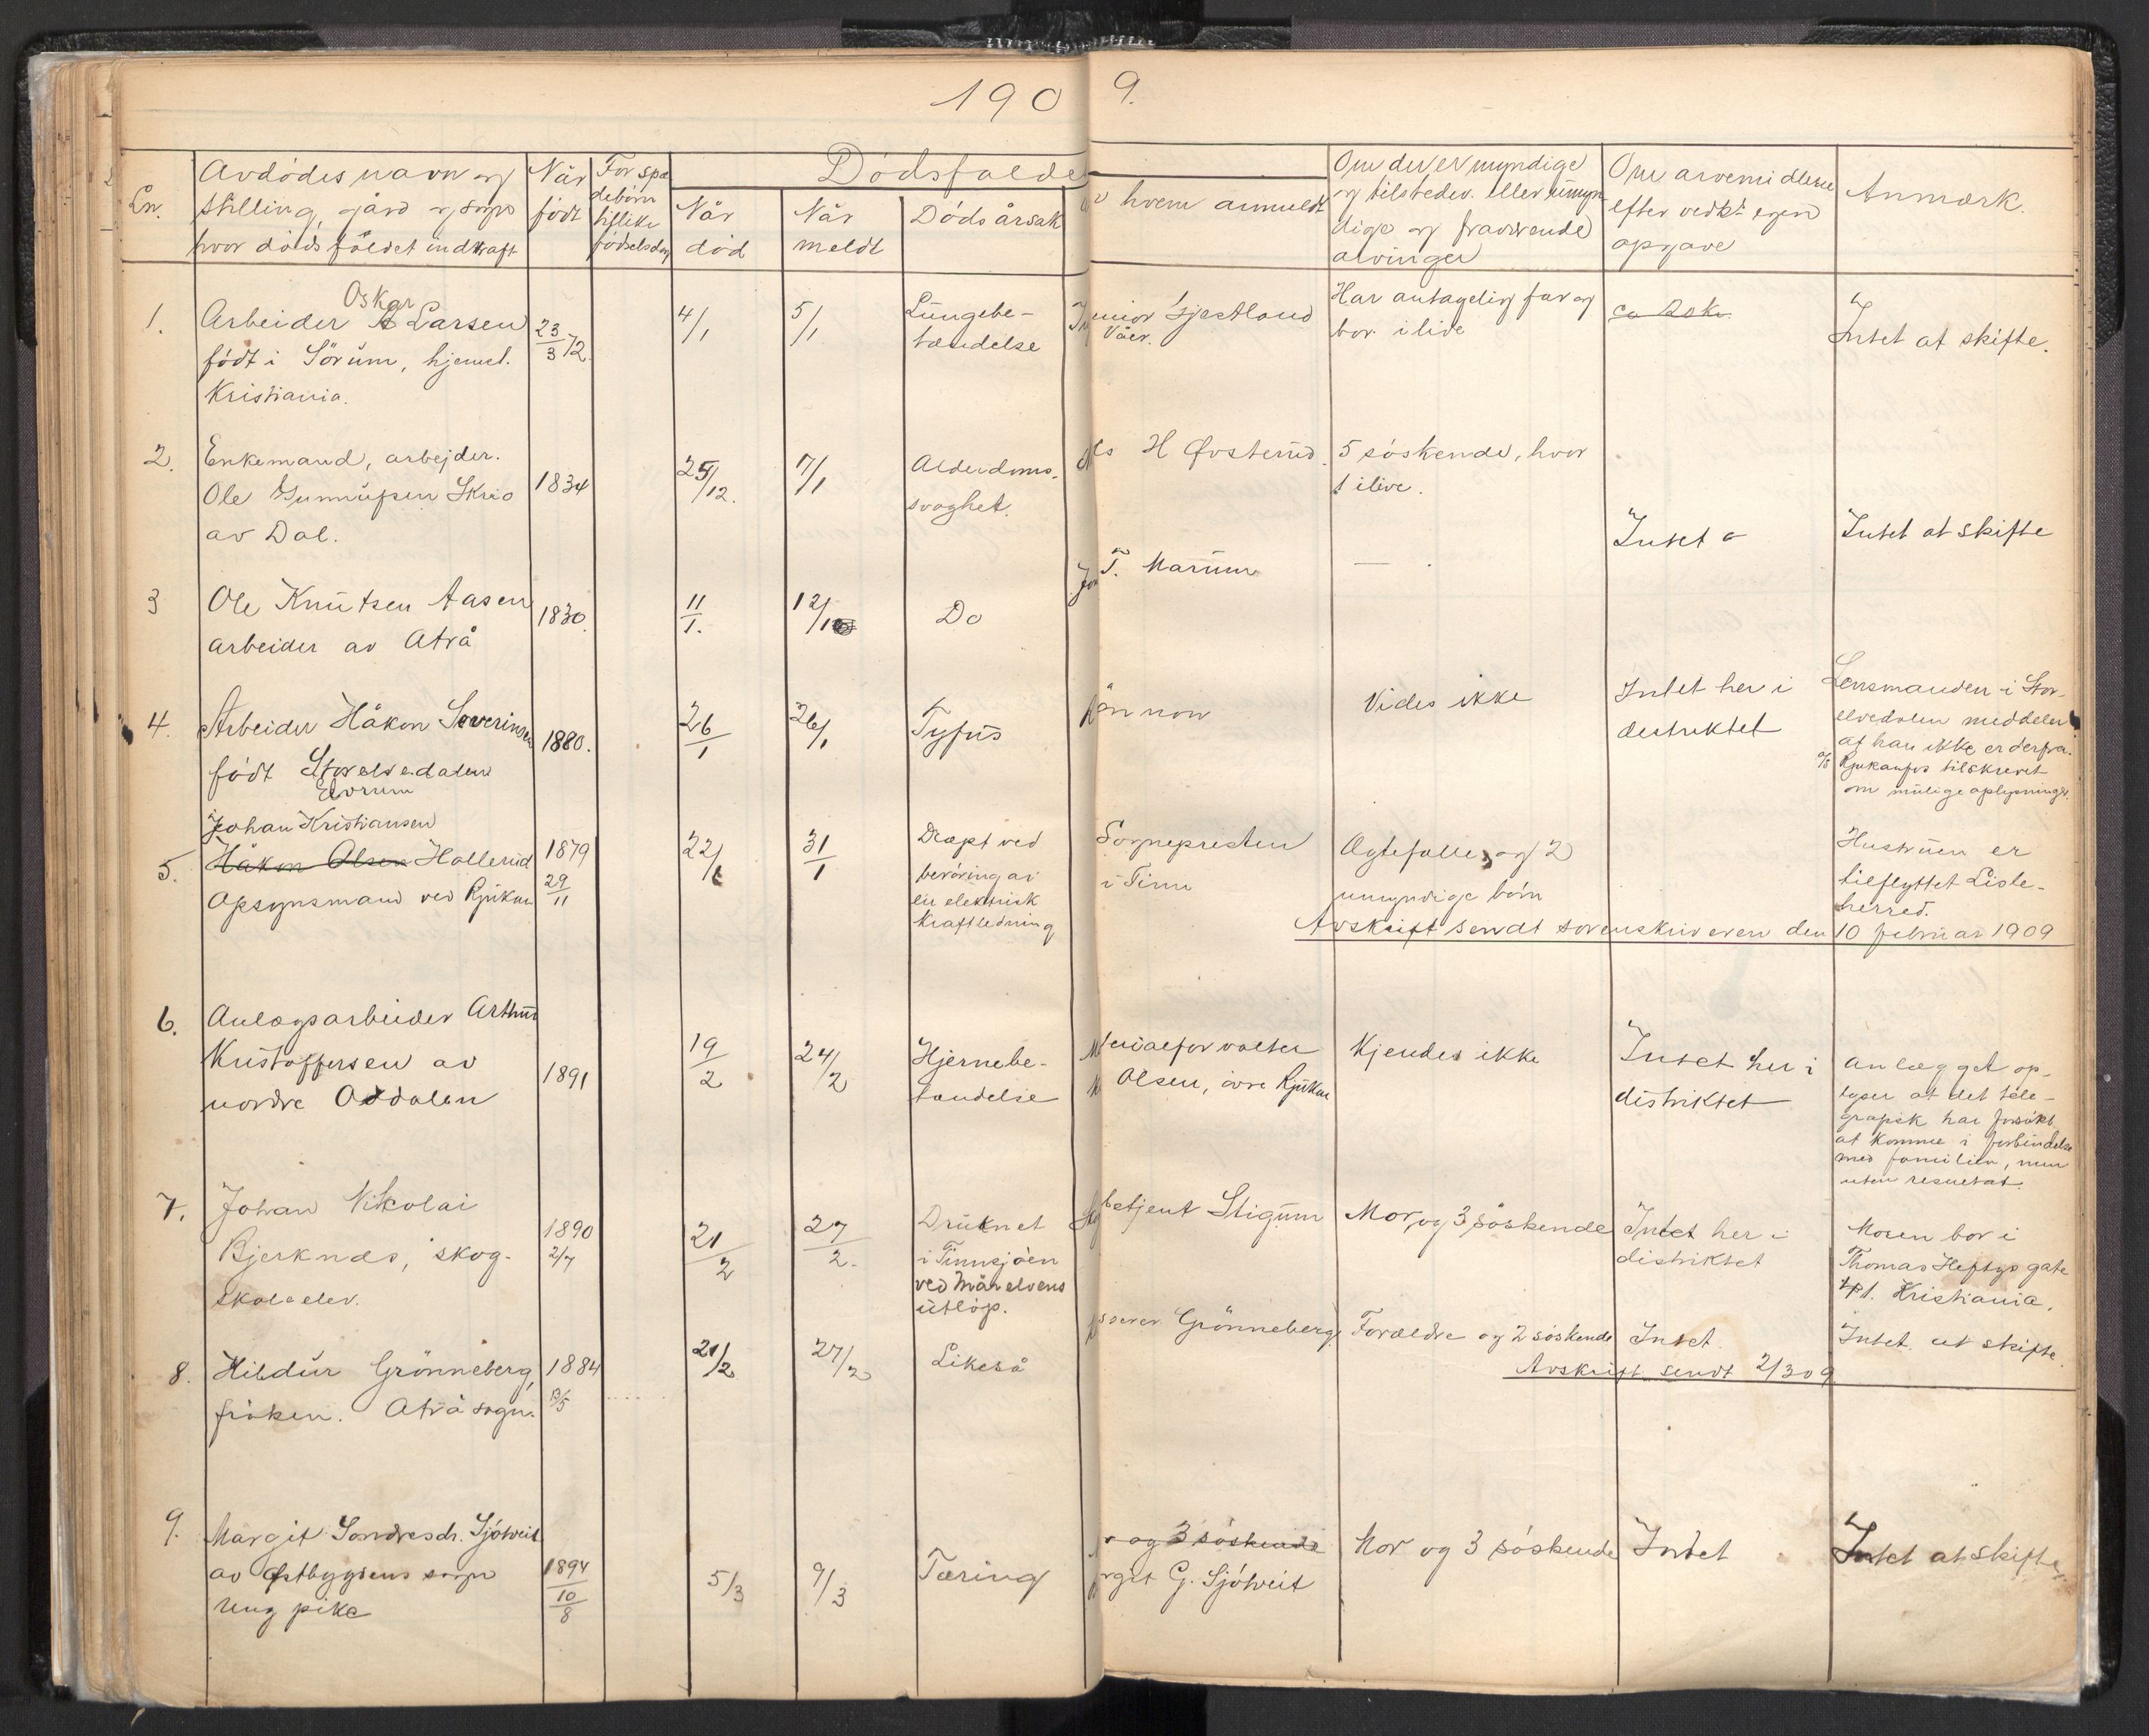 190 9.
Ln.
Avdödes navn og
stilling, gård og sogn
hvor dödsfaldet indtraf
Når
födt
For spæ
debörn
tillike
fødselsdag
Dödsfalde
Når
död
Når
meldt
Dödsårsak
v hvem anmeldt
Om der er myndige
og tilstedev. eller umyn
dige og fraværende
arvinger
Om arvemidlene
efter vedk. egen
opgave
Anmærk.
1.
Oskar
Arbeider Larsen
födt i Sörum, hjemst.
Kristiania.
23/3 72.
4/1
5/1
Lungebe-
tændelse
Har antagelig far og
bor i live
Intet at skifte.
2.
Enkemand, arbejder.
Ole Gunnufsen
av Dal.
1834
25/12.
7/1
Alderdoms-
svaghet.
H Øvsterud.
5 söskende, hvor
1 ilive.
Intet
Intet at skifte
3
Ole Knutsen Aasen
arbeider av Atrå
1830.
11/1.
12/1
Do
T. Marum
—
4.
Arbeider Håkon Severinsen
födt Storelvedalen
Elvrum
1880.
26/1
26/1
Tyfus
Vides ikke
Intet her i
destriktet
Lensmanden i Stor-
elvedalen meddeler
at han ikke er derfra.
Rjukanfos tilskrevet
om mulige oplysninger.
5.
Johan Kristiansen
Håkon Olsen Hollerud
Opsynsmand ved Rjukan
1879
29/11
22/1
31/1
Dræpt ved
beröring av
en elektrisk
kraftledning
Sognepresten
i Tinn
Ægtefælle, og 2
umyndige börn
Hustruen er
tilflyttet Lisle-
herred.
Avskrift sendt sorenskriveren den 10 februar 1909
6.
Anlægsarbeider Arthur
Kristoffersen av
nordre Oddalen
1891
19/2
24/2
Hjernebe-
tændelse
erialforvalter
Olsen, övre Rjukan
Kjendes ikke
Intet her i
distriktet
anlægget op-
lyser at det tele-
grafisk har forsökt
at komme i forbindelse
med familien, men
uten resultat.
7.
Johan Nikolai
Bjerknæs, skog-
skoleelev.
1890
2/7
21/2
27/2.
Druknet
i Tinnsjöen
ved Mårelvens
utlöp.
betjent Stigum
Mor, og 3 söskende
Intet her i
distriktet
Moren bor i
Thomas Heftys gate
41. Kristiania.
8.
Hildur Grönneberg,
fröken. Atrå sogn.
1884
13/5
21/2
27/2
Likeså
Grönneberg.
Forældre og 2 söskende
Intet.
Intet at skifte.
Avskrift sendt 2/3 09
9.
Margit Sondresdr. Sjötveit
av Østbygdens sogn
Ung pike
1894
10/8
5/3
9/3
Tæring
r og 3 söskende
rgit G. Sjötveit
Mor og 3 söskende
Intet
Intet at skifte.